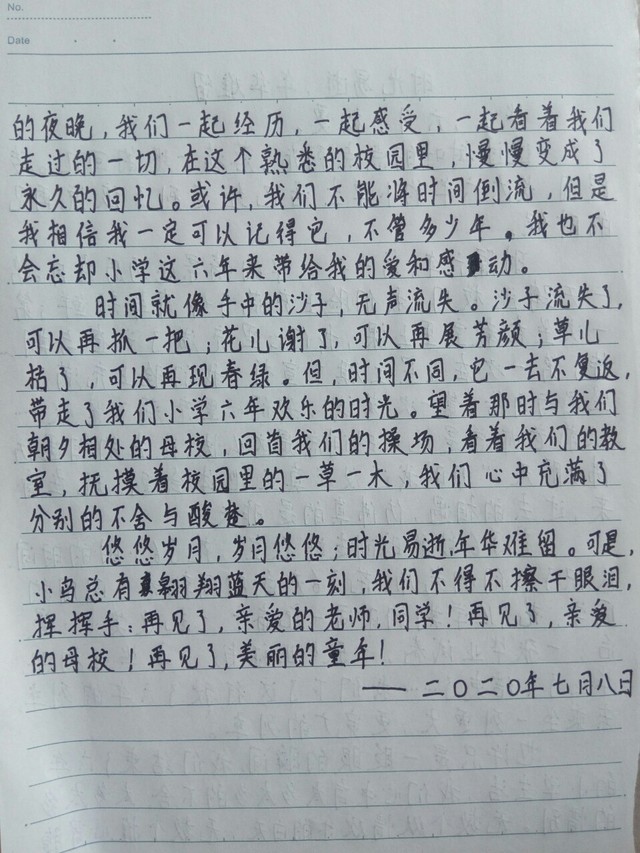 No.
Date
的夜晚，我们一起经历，一起感受，一起看着我们
走过的一切，在这个熟悉的校园里，慢慢变成了
永久的回忆。或许，我们不能将时间倒流，但是
我相信我一定可以记得它，不管多少年。我也不
会忘却小学这六年来带给我的爱和感动。
时间就像手中的沙子，无声流失。沙子流失了，
可以再抓一把；花儿谢了，可以再展芳颜；草儿
枯了，可以再现春绿。但，时间不同，它一去不复返，
带走了我们小学六年欢乐的时光。望着那时与我们
朝夕相处的母校，回首我们的操场，看着我们的教
室，抚摸着校园里的一草一木，我们心中充满了
分别的不舍与酸楚。
悠悠岁月，岁月悠悠；时光易逝，年华难留。可是，
小鸟总有翱翔蓝天的一刻，我们不得不擦干眼泪，
挥挥手：再见了，亲爱的老师，同学！再见了，亲爱
的母校！再见了，美丽的童年！
——二〇二〇年七月八日